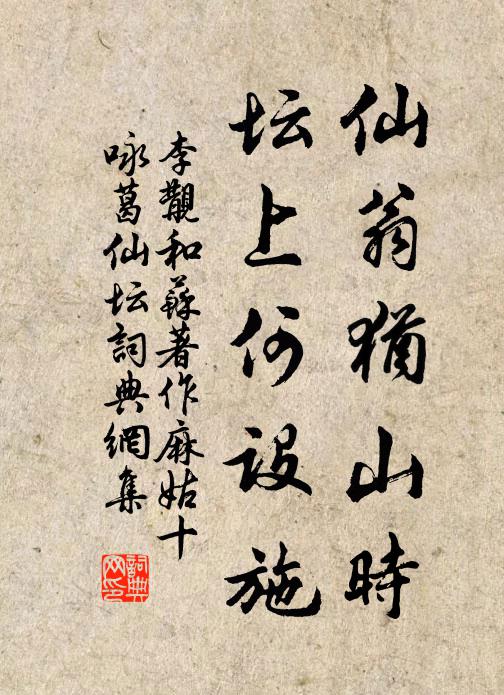 仙翁犹山時
坛上何設施
李觀和蘇著作麻姑十
咏葛仙坛詞典網集
詞典网印